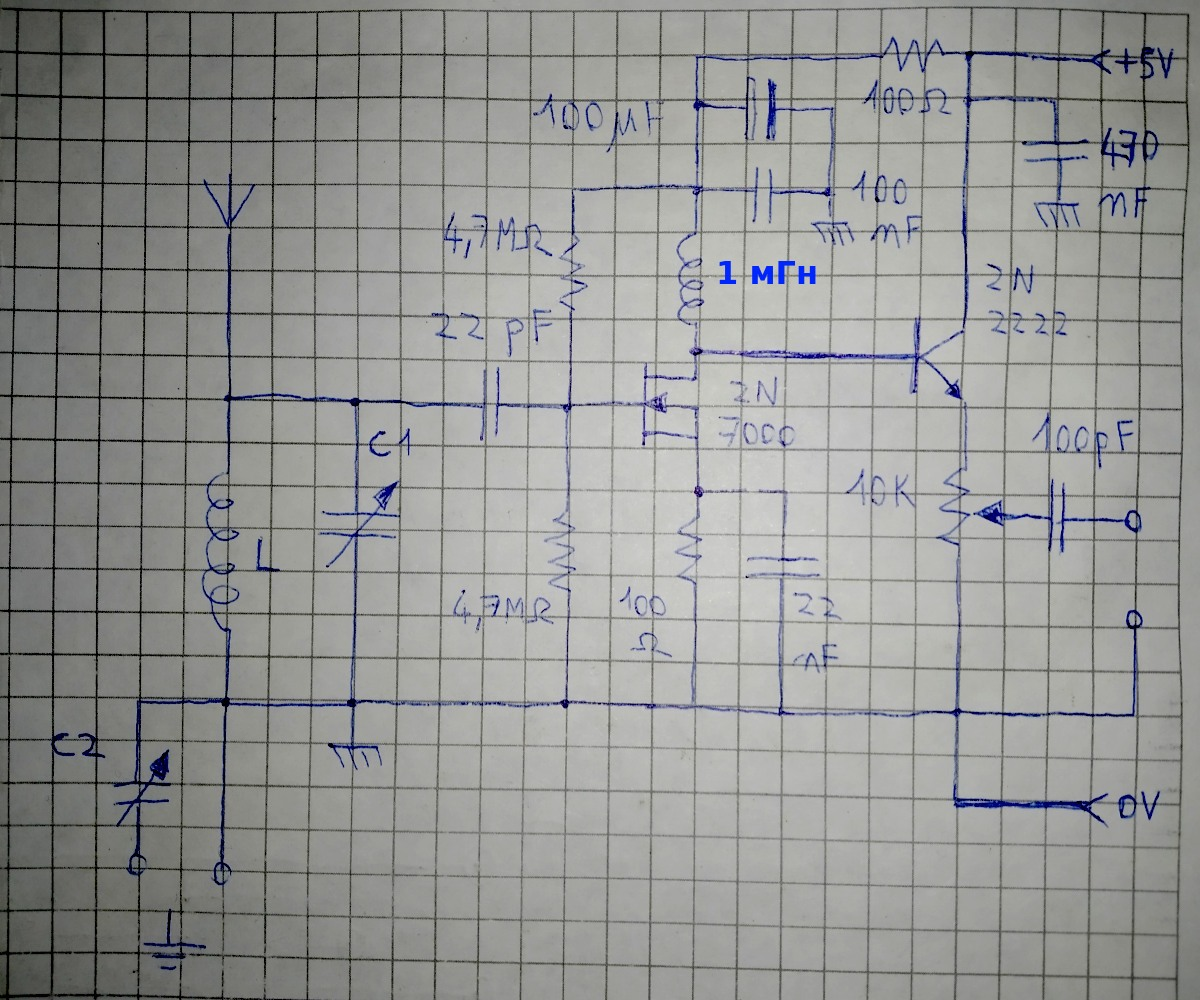 +5V
100µF
100Ω
470
nF
100
nF
4,7MΩ
1 мГн
2N
2222
22 pF
2N
7000
C1
100pF
10K
L
4,7MΩ
100
Ω
22
nF
C2
0V